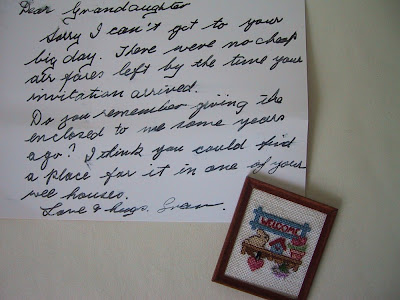 Dear Grandaughter
Sorry I can't get to your
big day. There were no cheap
air fares left by the time your
invitation arrived.
Do you remember giving the
enclosed to me some years
ago? I think you could find
a place for it in one of your
wee houses.
Love & hugs. Gran.
WELCOME